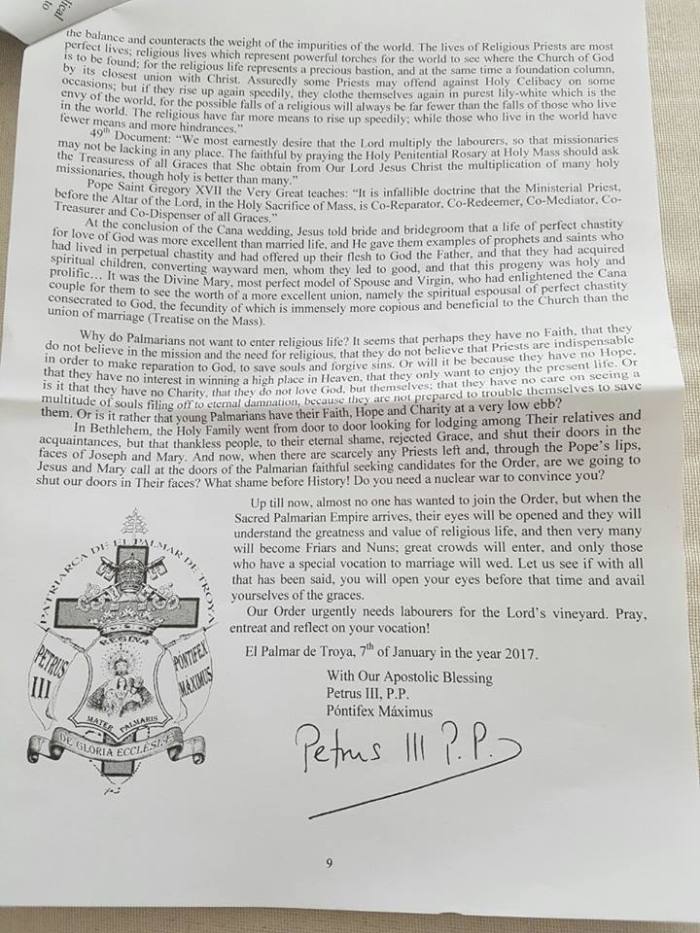 lical
to
the balance and counteracts the weight of the impurities of the world. The lives of Religious Priests are most
perfect lives; religious lives which represent powerful torches for the world to see where the Church of God
is to be found; for the religious life represents a precious bastion, and at the same time a foundation column,
by its closest union with Christ. Assuredly some Priests may offend against Holy Celibacy on some
occasions; but if they rise up again speedily, they clothe themselves again in purest lily-white which is the
envy of the world, for the possible falls of a religious will always be far fewer than the falls of those who live
in the world. The religious have far more means to rise up speedily; while those who live in the world have
fewer means and more hindrances."
49th Document: "We most earnestly desire that the Lord multiply the labourers, so that missionaries
may not be lacking in any place. The faithful by praying the Holy Penitential Rosary at Holy Mass should ask
the Treasuress of all Graces that She obtain from Our Lord Jesus Christ the multiplication of many holy
missionaries, though holy is better than many."
Pope Saint Gregory XVII the Very Great teaches: "It is infallible doctrine that the Ministerial Priest,
before the Altar of the Lord, in the Holy Sacrifice of Mass, is Co-Reparator, Co-Redeemer, Co-Mediator, Co-
Treasurer and Co-Dispenser of all Graces."
At the conclusion of the Cana wedding, Jesus told bride and bridegroom that a life of perfect chastity
for love of God was more excellent than married life, and He gave them examples of prophets and saints who
had lived in perpetual chastity and had offered up their flesh to God the Father, and that they had acquired
spiritual children, converting wayward men, whom they led to good, and that this progeny was holy and
prolific... It was the Divine Mary, most perfect model of Spouse and Virgin, who had enlightened the Cana
couple for them to see the worth of a more excellent union, namely the spiritual espousal of perfect chastity
consecrated to God, the fecundity of which is immensely more copious and beneficial to the Church than the
union of marriage (Treatise on the Mass).
Why do Palmarians not want to enter religious life? It seems that perhaps they have no Faith, that they
do not believe in the mission and the need for religious, that they do not believe that Priests are indispensable
in order to make reparation to God, to save souls and forgive sins. Or will it be because they have no Hope,
that they have no interest in winning a high place in Heaven, that they only want to enjoy the present life. Or
is it that they have no Charity, that they do not love God, but themselves; that they have no care on seeing a
multitude of souls filing off to eternal damnation, because they are not prepared to trouble themselves to save
them. Or is it rather that young Palmarians have their Faith, Hope and Charity at a very low ebb?
In Bethlehem, the Holy Family went from door to door looking for lodging among Their relatives and
acquaintances, but that thankless people, to their eternal shame, rejected Grace, and shut their doors in the
faces of Joseph and Mary. And now, when there are scarcely any Priests left and, through the Pope's lips,
Jesus and Mary call at the doors of the Palmarian faithful seeking candidates for the Order, are we going to
shut our doors in Their faces? What shame before History! Do you need a nuclear war to convince you?
Up till now, almost no one has wanted to join the Order, but when the
Sacred Palmarian Empire arrives, their eyes will be opened and they will
understand the greatness and value of religious life, and then very many
will become Friars and Nuns; great crowds will enter, and only those
who have a special vocation to marriage will wed. Let us see if with all
that has been said, you will open your eyes before that time and avail
yourselves of the graces.
Our Order urgently needs labourers for the Lord's vineyard. Pray,
entreat and reflect on your vocation!
El Palmar de Troya, 7th of January in the year 2017.
With Our Apostolic Blessing
Petrus III, P.P.
Póntifex Máximus
Petrus III P.P.
PATRIARCA DE EL PALMAR DE TROYA
REGINA
PETRUS III
PÓNTIFEX MÁXIMUS
MATER PALMARIS
DE GLORIA ECCLESIÆ
9